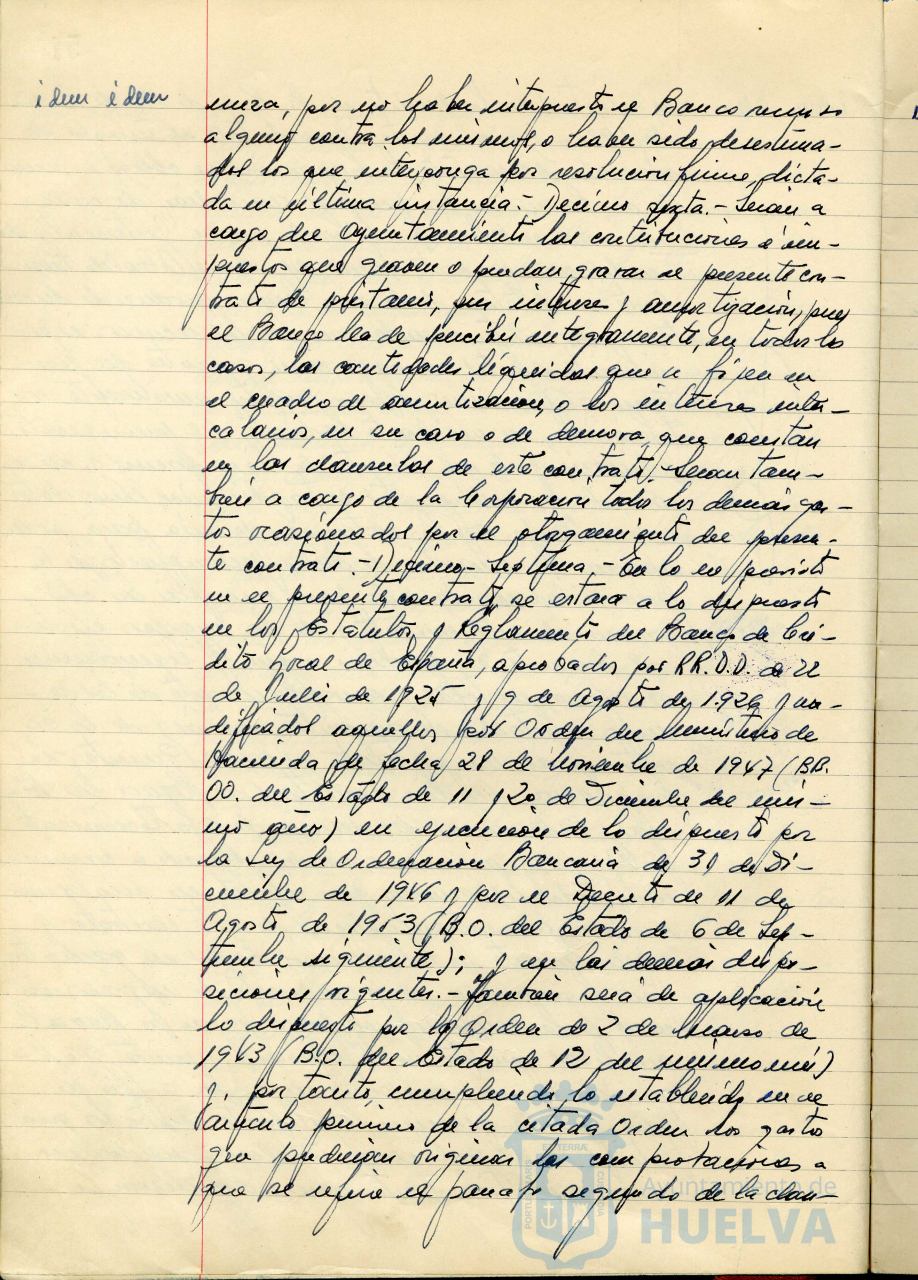 idem idem
mera, por no haber interpuesto el Banco recurso
alguno contra los mismos, o haber sido desestima-
dos los que interponga por resolución firme, dicta-
da en última instancia.- Decimo sexta.- Serán a
cargo del Ayuntamiento las contribuciones é im-
puestos que graven o puedan gravar el presente con-
trato de préstamo, sus intereses y amortización, pues
el Banco ha de percibir integramente, en todos los
casos, las cantidades líquidas que se fijen en
el cuadro de amortización, o los intereses inter-
calarios, en su caso o de demora, que constan
en las clausulas de este contrato. Seran tam-
bién a cargo de la Corporación todos los demás gas-
tos ocasionados por el otorgamiento del presen-
te contrato.- Decimo- Septima.- En lo no previsto
en el presente contrato, se estara a lo dispuesto
en los Estatutos y Reglamento del Banco de Cré-
dito Local de España, aprobados por RR.D.D. de 22
de Julio de 1925 y 9 de Agosto de 1.926 y mo-
dificados aquellos por Orden del Ministerio de
Hacienda de fecha 28 de Noviembre de 1947 (BB.
OO. del Estado de 11 y 20 de Diciembre del mis-
mo año) en ejecución de lo dispuesto por
la Ley de Ordenación Bancaria de 31 de Di-
ciembre de 1946 y por el Decreto de 11 de
Agosto de 1953 (B.O. del Estado de 6 de Sep-
tiembre siguiente); y en las demás dispo-
siciones vigentes.- También será de aplicación
lo dispuesto por la Orden de 2 de Marzo de
1963 (B.O. del Estado de 12 del mismo mes)
y, por tanto, cumpliendo lo establecido en el
artículo primero de la citada Orden los gastos
que pudieran originar las comprobaciones a
que se refiere el parrafo segundo de la clau-
PORTUS MARIS ET TERRAE CUSTODIA
Ayuntamiento de
HUELVA